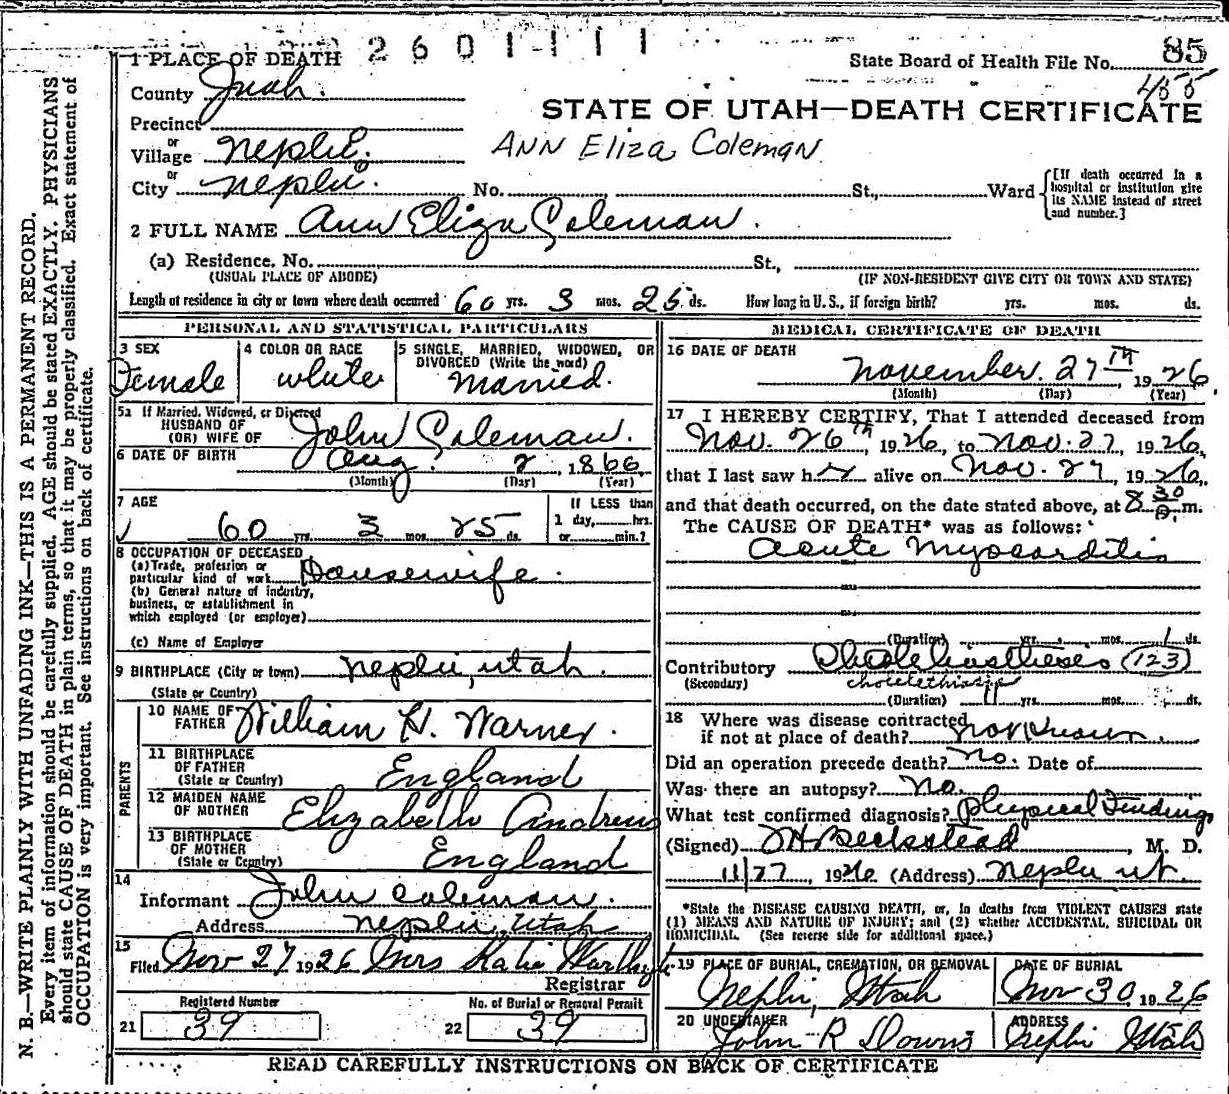 2601111
1 PLACE OF DEATH
State Board of Health File No. 85
455
County Juab.
STATE OF UTAH—DEATH CERTIFICATE
Precinct
or
Village Nephi.
ANN Eliza Coleman
or
City Nephi. No. St., Ward
[If death occurred in a hospital or institution give its NAME instead of street and number.]
2 FULL NAME Ann Eliza Coleman.
(a) Residence, No. St.,
(USUAL PLACE OF ABODE) (IF NON-RESIDENT GIVE CITY OR TOWN AND STATE)
Length of residence in city or town where death occurred 60 yrs. 3 mos. 25 ds. How long in U. S., if foreign birth? yrs. mos. ds.
PERSONAL AND STATISTICAL PARTICULARS
3 SEX
Female
4 COLOR OR RACE
white
5 SINGLE, MARRIED, WIDOWED, OR
DIVORCED (Write the word)
Married.
5a If Married, Widowed, or Divorced
HUSBAND OF
(OR) WIFE OF John Coleman.
6 DATE OF BIRTH Aug. 2, 1866
(Month) (Day) (Year)
7 AGE
60 yrs. 3 mos. 25 ds.
If LESS than
1 day, hrs.
or min.?
8 OCCUPATION OF DECEASED
(a) Trade, profession or
particular kind of work Housewife.
(b) General nature of industry,
business, or establishment in
which employed (or employer)
(c) Name of Employer
9 BIRTHPLACE (City or town) Nephi, Utah.
(State or Country)
PARENTS
10 NAME OF
FATHER William H. Warner.
11 BIRTHPLACE
OF FATHER
(State or Country) England
12 MAIDEN NAME
OF MOTHER Elizabeth Andrews
13 BIRTHPLACE
OF MOTHER
(State or Country) England
14
Informant John Coleman.
Address Nephi, Utah
15
Filed Nov 27 1926 Mrs Katie
Registrar
21
Registered Number
39
22
No. of Burial or Removal Permit
39
MEDICAL CERTIFICATE OF DEATH
16 DATE OF DEATH
November. 27th, 1926
(Month) (Day) (Year)
17 I HEREBY CERTIFY, That I attended deceased from
Nov. 26th, 1926, to Nov. 27, 1926,
that I last saw her alive on Nov. 27, 1926,
and that death occurred, on the date stated above, at 8 30 P. m.
The CAUSE OF DEATH* was as follows:
Acute Myocarditis
(Duration) yrs. mos. 1 ds.
Contributory (123)
(Secondary)
(Duration) yrs. mos. ds.
18 Where was disease contracted
if not at place of death? not known.
Did an operation precede death? No. Date of
Was there an autopsy? No.
What test confirmed diagnosis? Physical Findings
(Signed) Beckstead, M. D.
11/27, 1926 (Address) Nephi Ut.
*State the DISEASE CAUSING DEATH, or, in deaths from VIOLENT CAUSES state
(1) MEANS AND NATURE OF INJURY; and (2) whether ACCIDENTAL, SUICIDAL OR
HOMICIDAL. (See reverse side for additional space.)
19 PLACE OF BURIAL, CREMATION, OR REMOVAL
Nephi, Utah
DATE OF BURIAL
Nov 30, 1926
20 UNDERTAKER
John R Downs
ADDRESS
Nephi Utah
READ CAREFULLY INSTRUCTIONS ON BACK OF CERTIFICATE
N. B.—WRITE PLAINLY WITH UNFADING INK—THIS IS A PERMANENT RECORD.
Every item of information should be carefully supplied. AGE should be stated EXACTLY. PHYSICIANS
should state CAUSE OF DEATH in plain terms, so that it may be properly classified. Exact statement of
OCCUPATION is very important. See instructions on back of certificate.